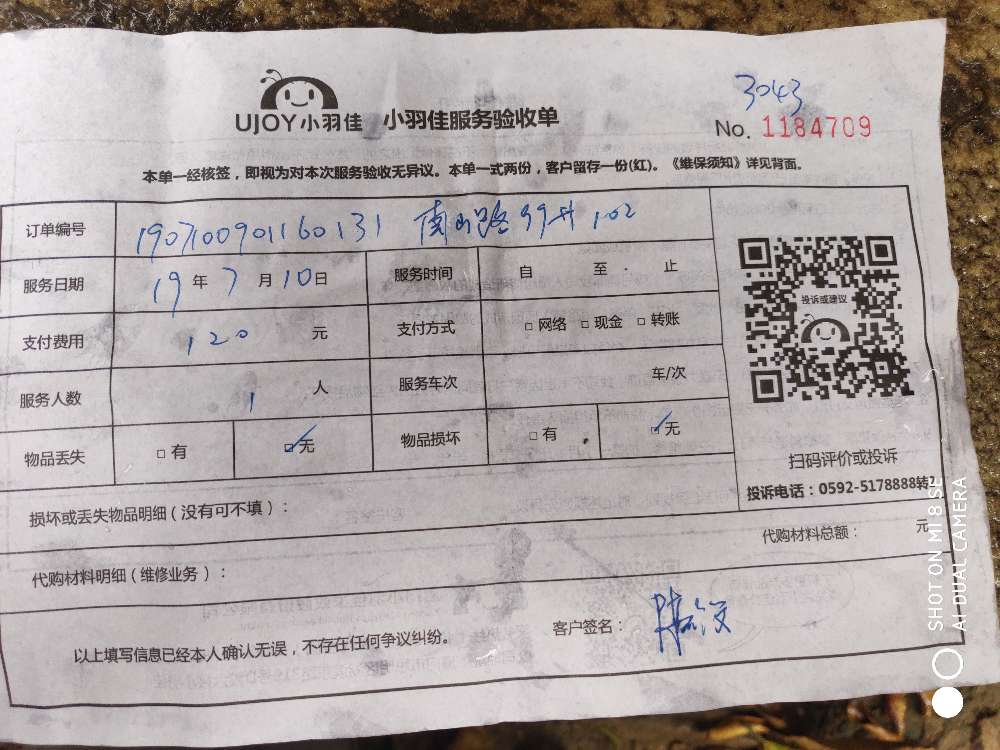 3043
UJOY小羽佳 小羽佳服务验收单
No. 1184709
本单一经核签，即视为对本次服务验收无异议。本单一式两份，客户留存一份(红)。《维保须知》详见背面。
订单编号 190710090116 0131 南山路99号 102
服务日期 19年7月10日 服务时间 自 至 止
支付费用 120 元 支付方式 □网络 □现金 □转账
服务人数 1 人 服务车次 车/次
物品丢失 □有 ☑无 物品损坏 □有 ☑无
投诉或建议
扫码评价或投诉
投诉电话：0592-5178888转2
损坏或丢失物品明细（没有可不填）：
代购材料总额： 元
代购材料明细（维修业务）：
以上填写信息已经本人确认无误，不存在任何争议纠纷。
客户签名：
SHOT ON MI 8 SE
AI DUAL CAMERA